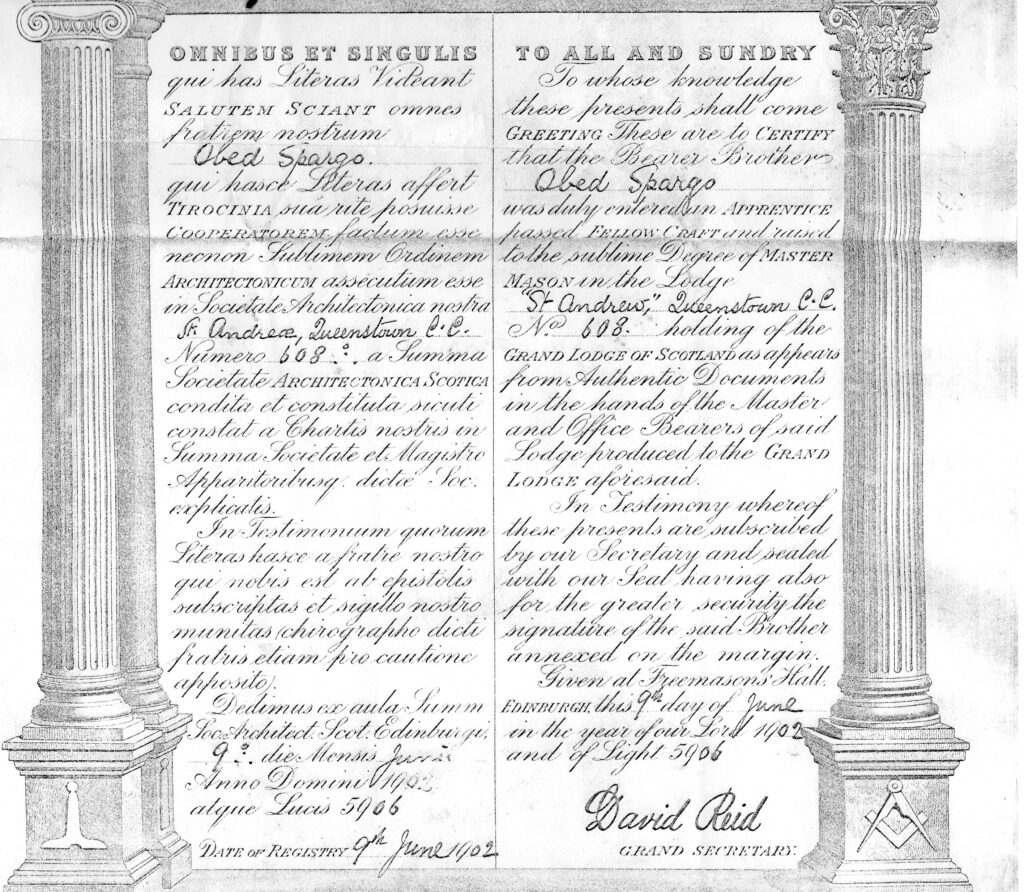 OMNIBUS ET SINGULIS
qui has Literas Videant
SALUTEM SCIANT omnes
fratrem nostrum
Obed Spargo.
qui hasce Literas affert
TIROCINIA sua rite posuisse
COOPERATOREM factum esse
necnon Sublimem Ordinem
ARCHITECTONICUM assecutum esse
in Societate Architectonica nostra
St. Andreæ, Queenstown C.C.
Numero 608.º. a Summa
Societate ARCHITECTONICA SCOTICA
condita et constituta sicuti
constat a Chartis nostris in
Summa Societate et Magistro
Apparitoribusq. dictæ Soc.
explicatis.
In Testimonium quorum
Literas hasce a fratre nostro
qui nobis est ab epistolis
subscriptas et sigillo nostro
munitas (chirographo dicti
fratris etiam pro cautione
apposito).
Dedimus ex aula Summ
Soc Architect. Scot. Edinburgi.
9º. die Mensis
Anno Domini 1902
atque Lucis 5906
DATE OF REGISTRY 9th June 1902
TO ALL AND SUNDRY
To whose knowledge
these presents shall come
GREETING These are to CERTIFY
that the Bearer Brother
Obed Spargo
was duly entered an APPRENTICE
passed FELLOW CRAFT and raised
to the sublime Degree of MASTER
MASON in the Lodge
"St Andrew," Queenstown C.C.
No 608. holding of the
GRAND LODGE OF SCOTLAND as appears
from Authentic Documents
in the hands of the Master
and Office Bearers of said
Lodge produced to the GRAND
LODGE aforesaid.
In Testimony whereof
these presents are subscribed
by our Secretary and sealed
with our Seal having also
for the greater security the
signature of the said Brother
annexed on the margin.
Given at Freemasons' Hall.
EDINBURGH, this 9th day of June
in the year of our Lord 1902
and of Light 5906
David Reid
GRAND SECRETARY.
G